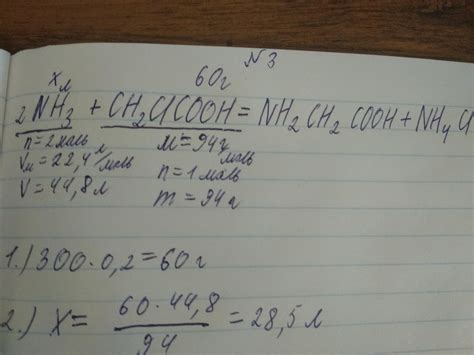 N3
xл 60г
2NH3 + CH2ClCOOH = NH2CH2COOH + NH4Cl
n=2моль M=94г/моль
Vм=22,4 л/моль n=1моль
V=44,8л m=94г
1.) 300·0,2=60г
2.) X= 60·44,8/94 =28,5л